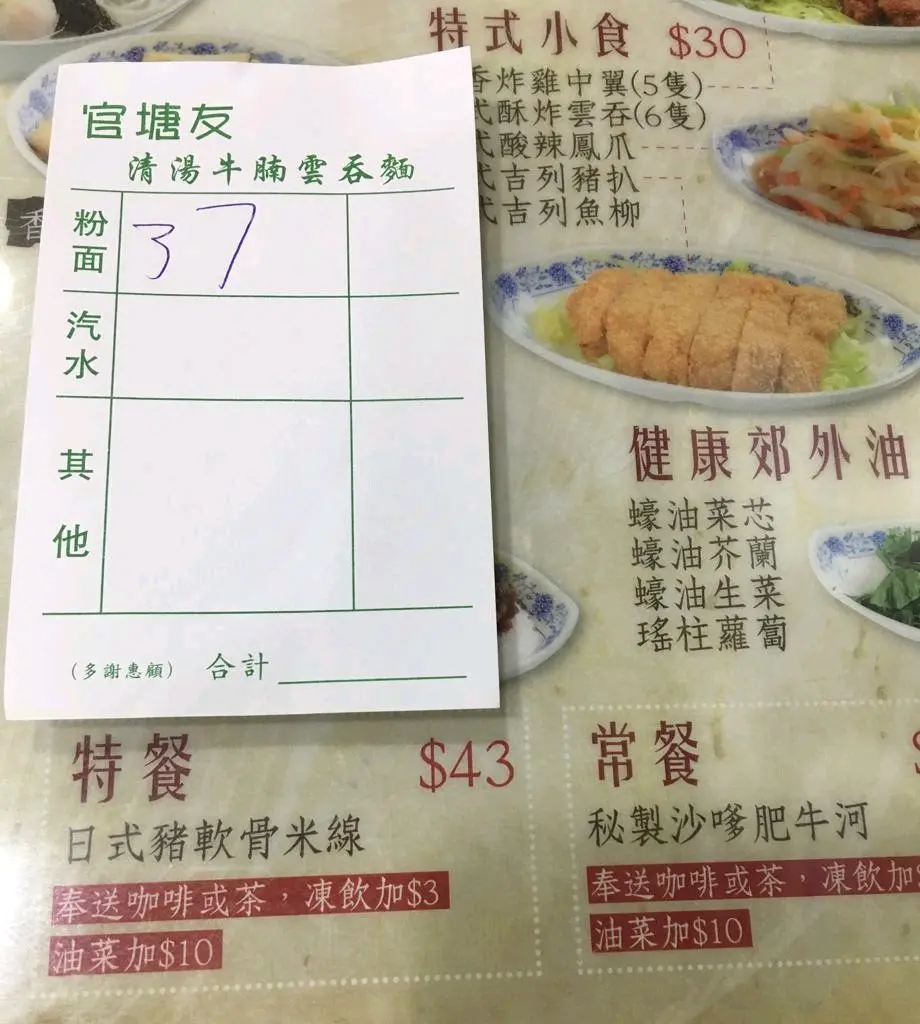 特式小食 $30
香炸雞中翼(5隻)
式酥炸雲吞(6隻)
式酸辣鳳爪
式吉列豬扒
式吉列魚柳
官塘友
清湯牛腩雲吞麵
粉面 37
汽水
其他
(多謝惠顧) 合計
香
健康郊外油
蠔油菜芯
蠔油芥蘭
蠔油生菜
瑤柱蘿蔔
特餐 $43
日式豬軟骨米線
奉送咖啡或茶，凍飲加$3
油菜加$10
常餐 $
秘製沙嗲肥牛河
奉送咖啡或茶，凍飲加$
油菜加$10